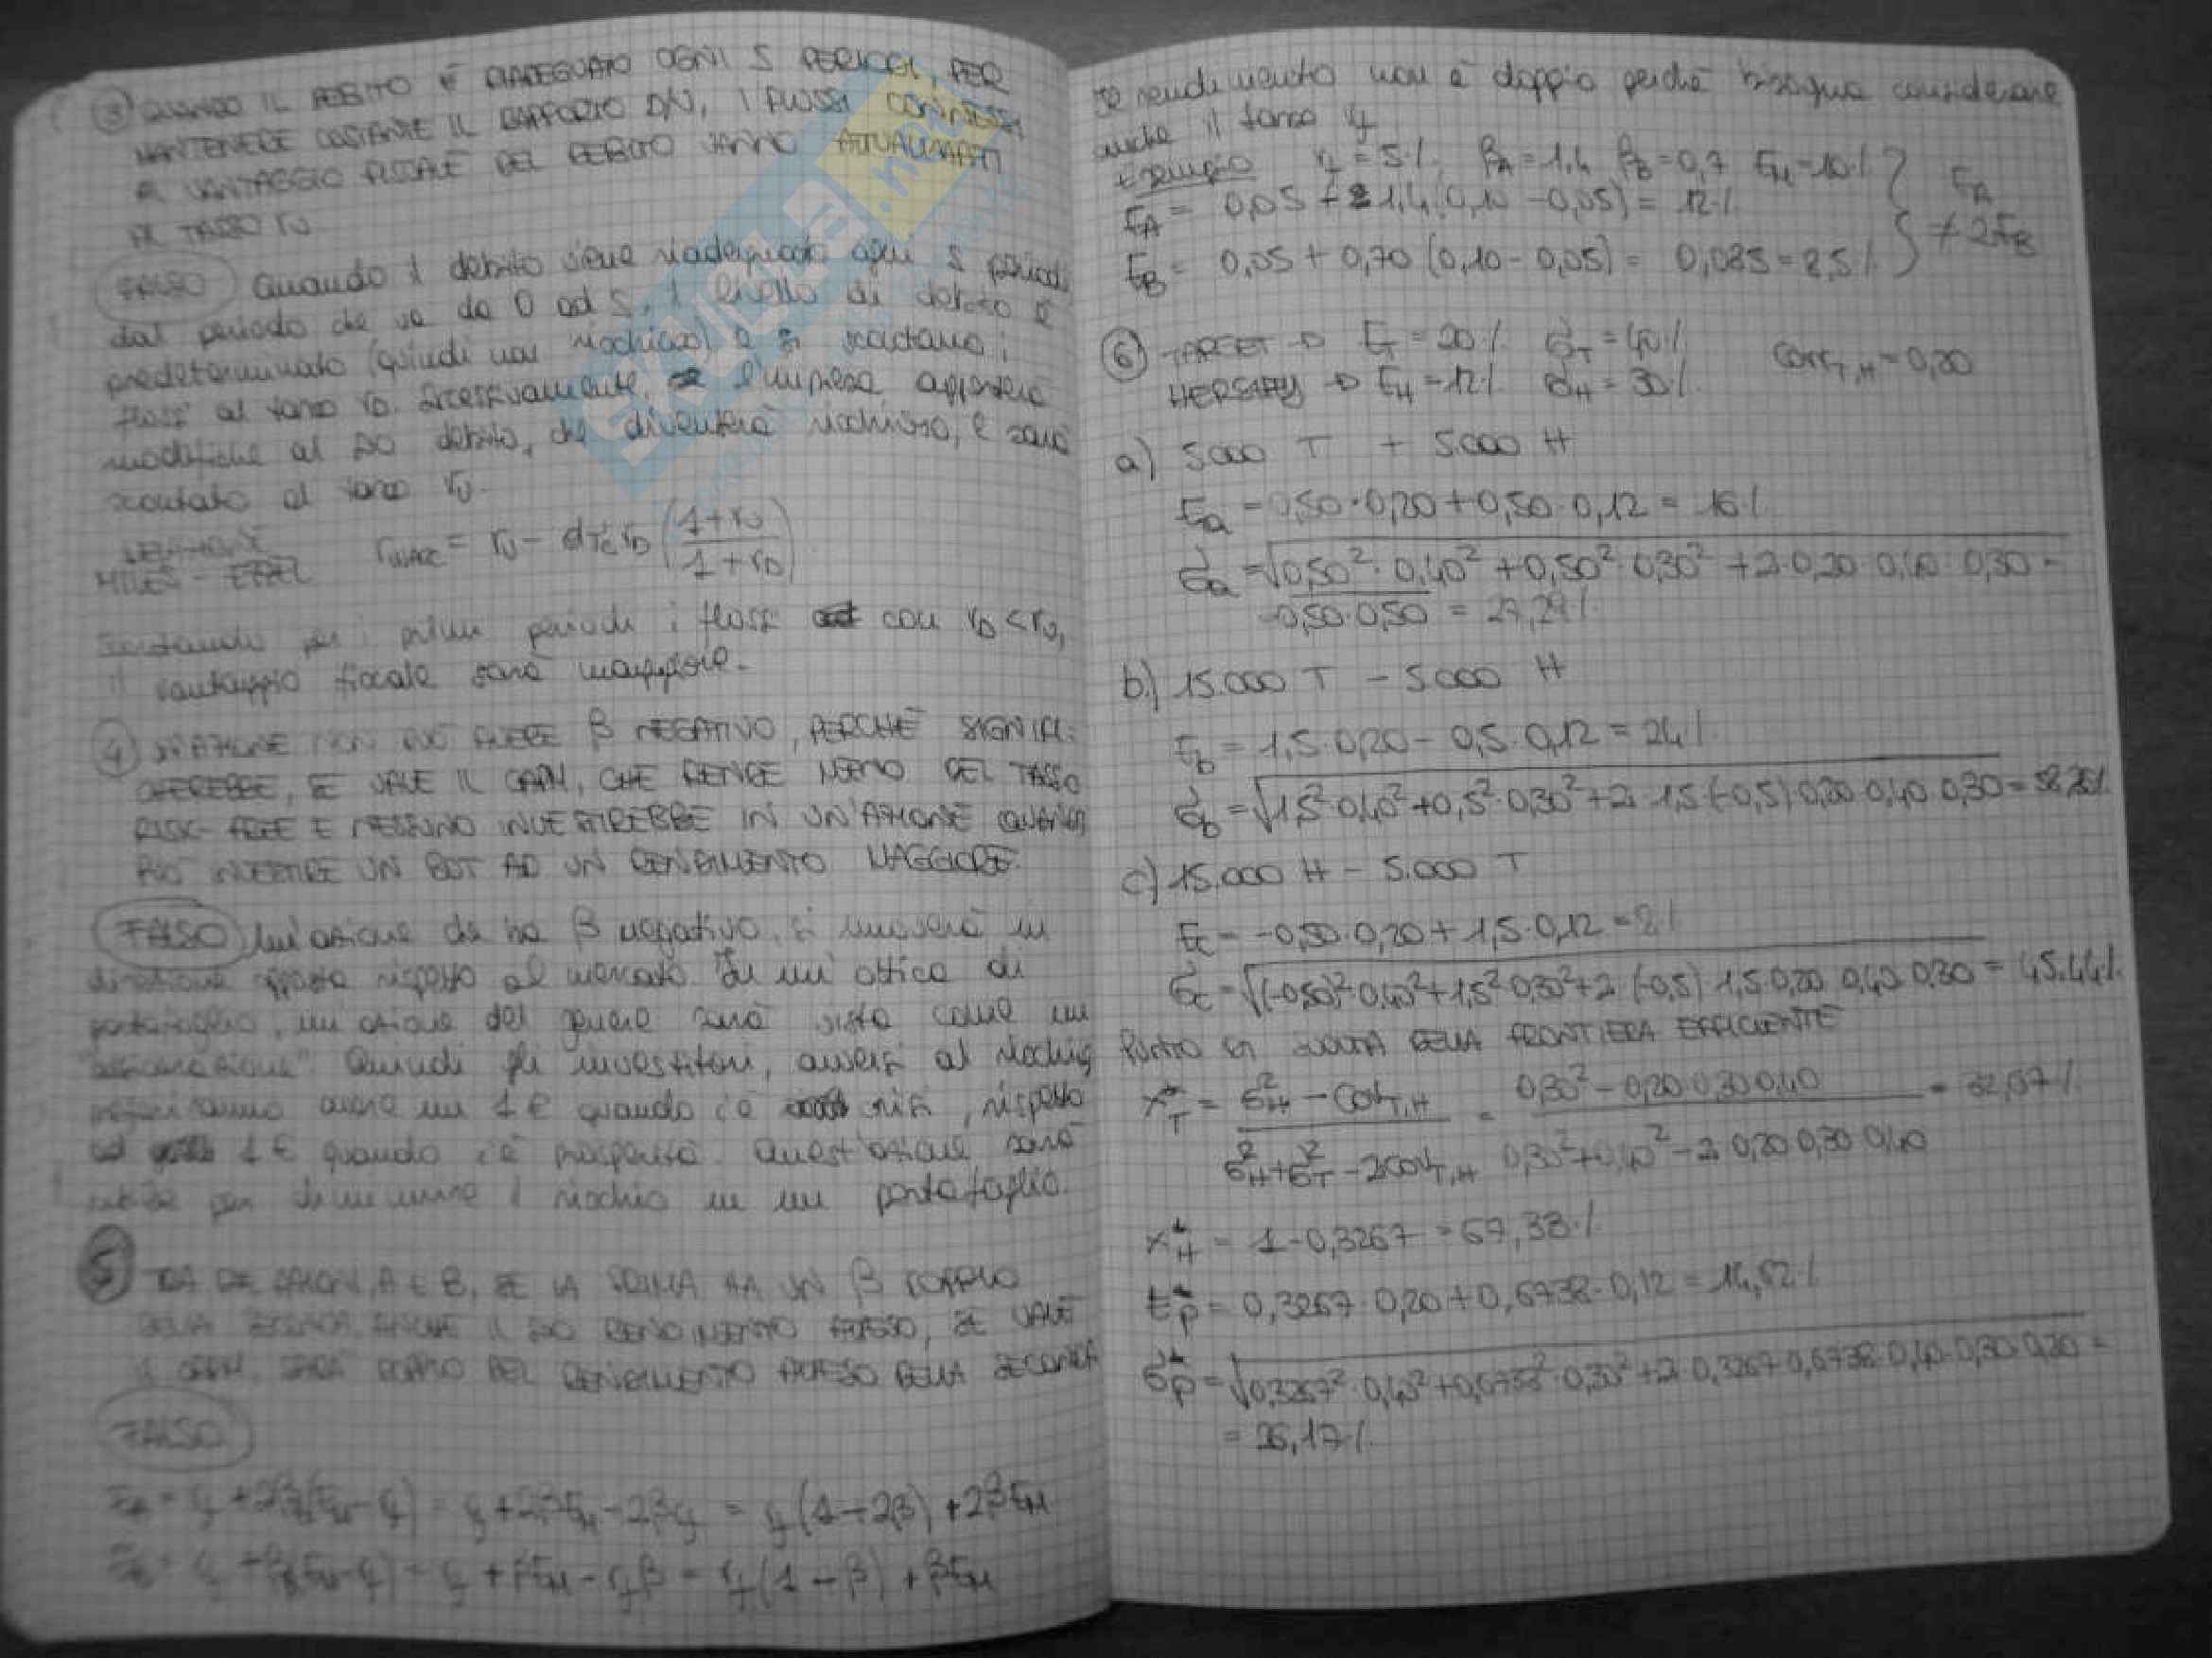 ③ QUANDO IL DEBITO È RIADEGUATO OGNI S PERIODI, PER
MANTENERE COSTANTE IL RAPPORTO D/V, I FLUSSI CONNESSI
AL VANTAGGIO FISCALE DEL DEBITO VANNO ATTUALIZZATI
AL TASSO rU
FALSO Quando il debito viene riadeguato ogni s periodi
dal periodo che va da 0 ad S, il livello di debito è
predeterminato (quindi non rischioso) e si scontano i
flussi al tasso rD. Successivamente, l'impresa apporterà
modifiche al suo debito, che diventerà rischioso, e sarà
scontato al tasso rU.
MILES - EZZEL rWACC = rU - dTCrD (1+rU / 1+rD)
Scontando per i primi periodi i flussi con rD < rU,
il vantaggio fiscale sarà maggiore.
④ UN'AZIONE NON PUÒ AVERE β NEGATIVO, PERCHÈ SIGNIFI-
CHEREBBE, SE VALE IL CAPM, CHE RENDE MENO DEL TASSO
RISK-FREE E NESSUNO INVESTIREBBE IN UN'AZIONE QUANDO
PUÒ INVESTIRE UN BOT AD UN RENDIMENTO MAGGIORE.
FALSO Un'azione che ha β negativo, si muoverà in
direzione opposta rispetto al mercato. In un'ottica di
portafoglio, un'azione del genere sarà vista come un
"assicurazione". Quindi gli investitori, avversi al rischio
preferiranno avere un 1€ quando c'è crisi, rispetto
ad 1€ quando c'è prosperità. Quest'azione sarà
utile per diminuire il rischio in un portafoglio.
⑤ TRA DUE AZIONI, A E B, SE LA PRIMA HA UN β DOPPIO
DELLA SECONDA ANCHE IL SUO RENDIMENTO ATTESO, SE VALE
IL CAPM, SARÀ DOPPIO DEL RENDIMENTO ATTESO DELLA SECONDA
FALSO
EA = rf + 2β(EM - rf) = rf + 2βEM - 2βrf = rf(1-2β) + 2βEM
EB = rf + β(EM - rf) = rf + βEM - rfβ = rf(1-β) + βEM
Il rendimento non è doppio perchè bisogna considerare
anche il tasso rf
Esempio rf = 5% βA = 1,4 βB = 0,7 EM = 10%
EA = 0,05 + 1,4(0,10 - 0,05) = 12%
EB = 0,05 + 0,70 (0,10 - 0,05) = 0,085 = 8,5%
EA ≠ 2EB
⑥ TARGET → ET = 20% σT = 40% CorrT,H = 0,20
HERSHEY → EH = 12% σH = 30%
a) 5.000 T + 5.000 H
Ea = 0,50·0,20 + 0,50·0,12 = 16%
σa = √0,50²·0,40² + 0,50²·0,30² + 2·0,20·0,40·0,30·
·0,50·0,50 = 27,29%
b) 15.000 T - 5.000 H
Eb = 1,5·0,20 - 0,5·0,12 = 24%
σb = √1,5²·0,40² + 0,5²·0,30² + 2·1,5·(-0,5)·0,20·0,40·0,30 =
c) 15.000 H - 5.000 T
Ec = -0,50·0,20 + 1,5·0,12 = 8%
σc = √(-0,50)²·0,40² + 1,5²·0,30² + 2·(-0,5)·1,5·0,20·0,40·0,30 = 45,44%
PUNTO DI SVOLTA DELLA FRONTIERA EFFICIENTE
x*T = σ²H - covT,H / σ²H + σ²T - 2covT,H = 0,30² - 0,20·0,30·0,40 / 0,30² + 0,40² - 2·0,20·0,30·0,40 = 32,67%
x*H = 1 - 0,3267 = 67,38%
E*p = 0,3267·0,20 + 0,6738·0,12 = 14,62%
σ*p = √0,3267²·0,40² + 0,6738²·0,30² + 2·0,3267·0,6738·0,40·0,30·0,20 =
= 26,17%